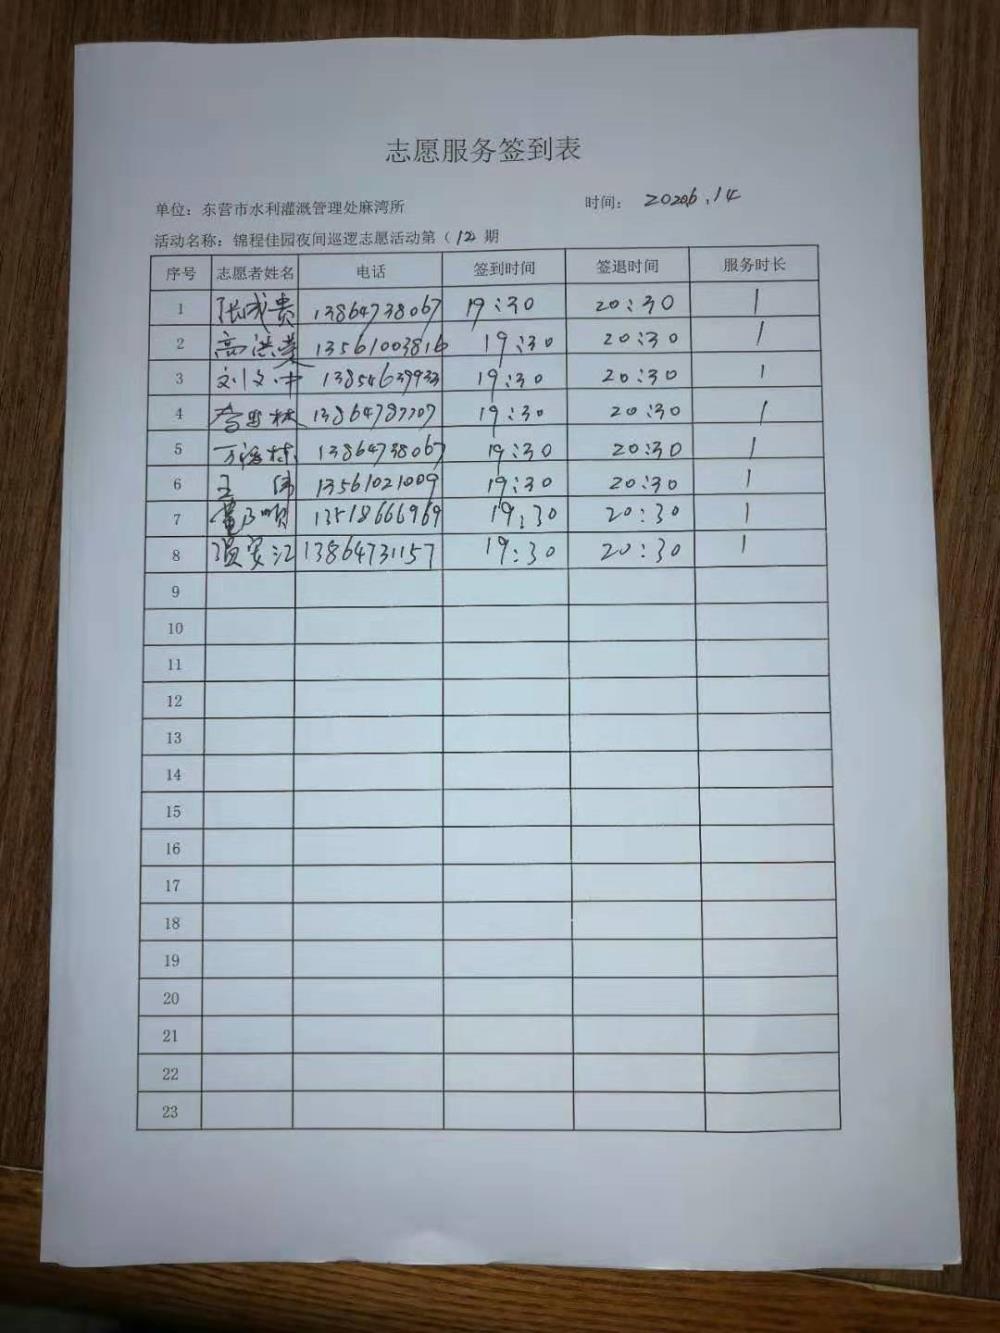 志愿服务签到表
单位：东营市水利灌溉管理处麻湾所 时间： 2020.6.14
活动名称：锦程佳园夜间巡逻志愿活动第（12）期
序号 志愿者姓名 电话 签到时间 签退时间 服务时长
1 张成贵 13864738067 19:30 20:30 1
2 高洪 13561003816 19:30 20:30 1
3 刘文中 13854639933 19:30 20:30 1
4 李 林 13864787707 19:30 20:30 1
5 万 林 13864738067 19:30 20:30 1
6 王 伟 13561021009 19:30 20:30 1
7 董 顺 13518666969 19:30 20:30 1
8 安江 13864731157 19:30 20:30 1
9
10
11
12
13
14
15
16
17
18
19
20
21
22
23